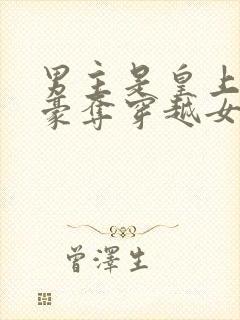 男主是皇上
豪夺穿越女
曾澤生